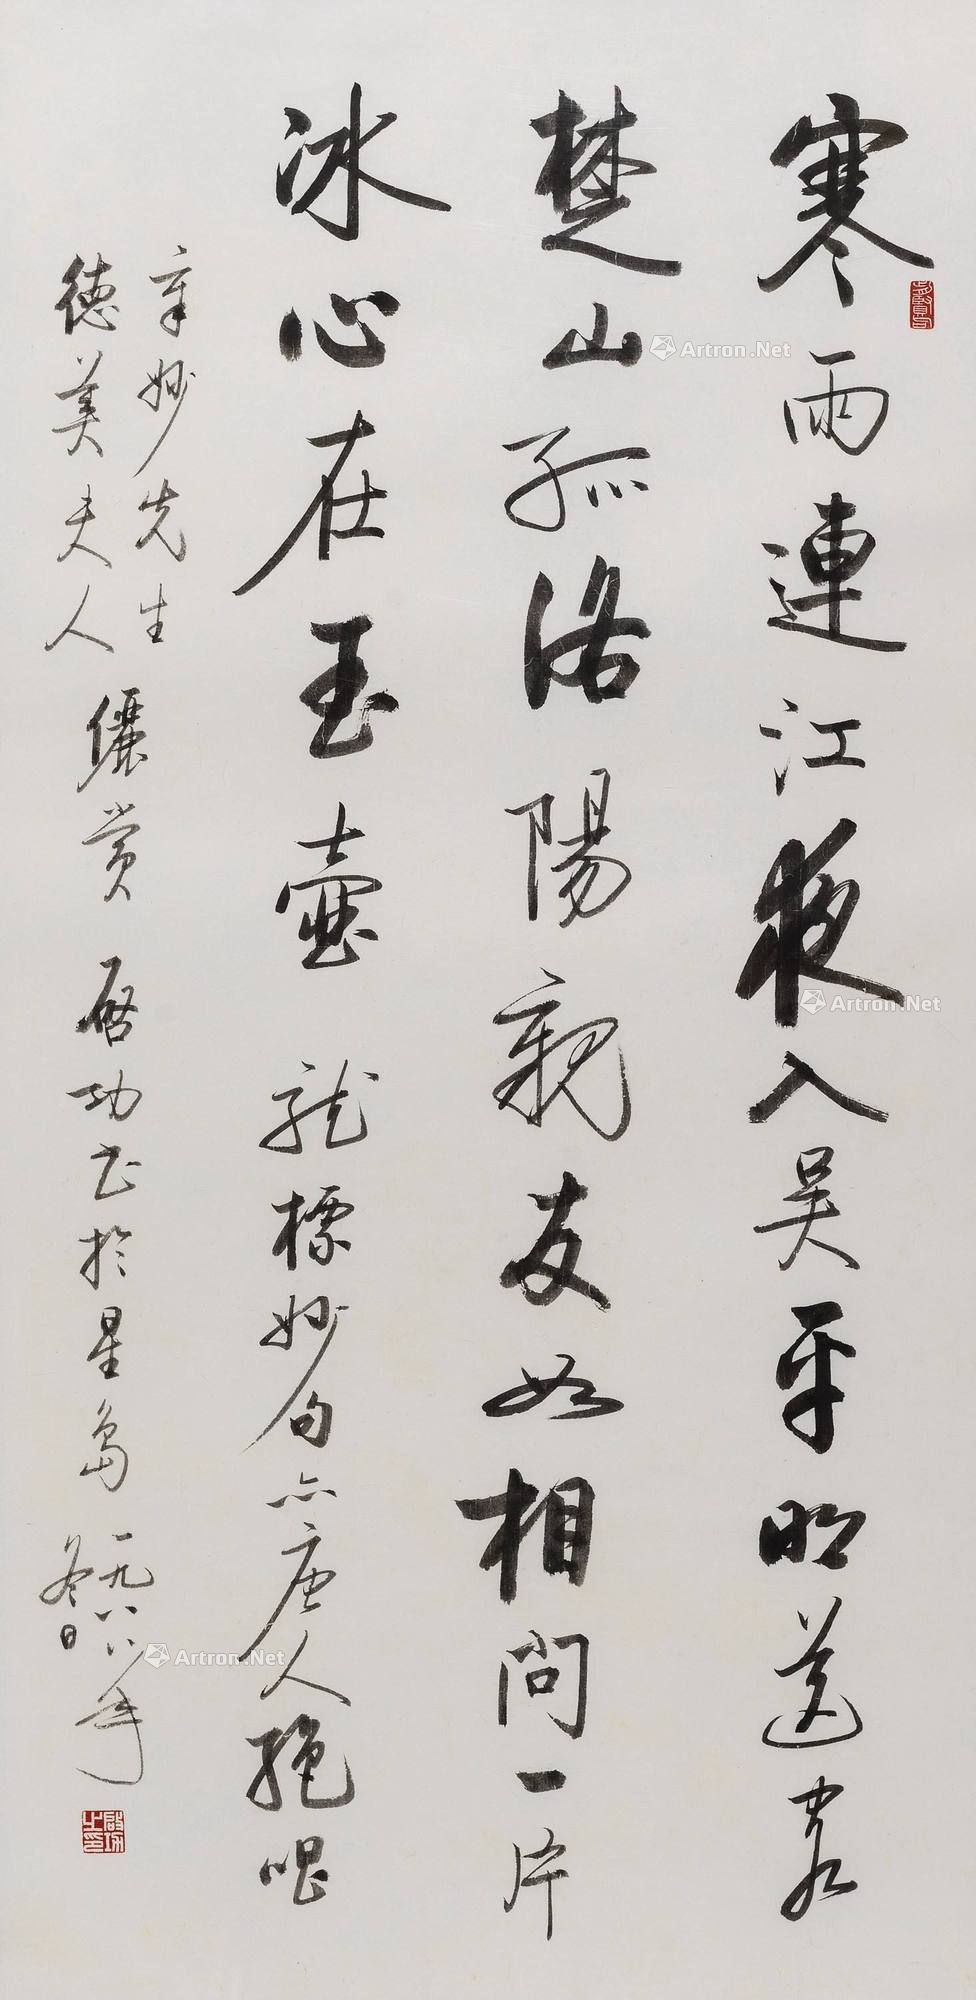 寒雨連江夜入吴平明送客
楚山孤洛陽親友如相問一片
冰心在玉壺 龍標妙句亦唐人絕唱
辛妙先生
德美夫人
儷賞 啓功書於星島 一九八八年
冬日
啟功之印
Artron.Net
Artron.Net
Artron.Net